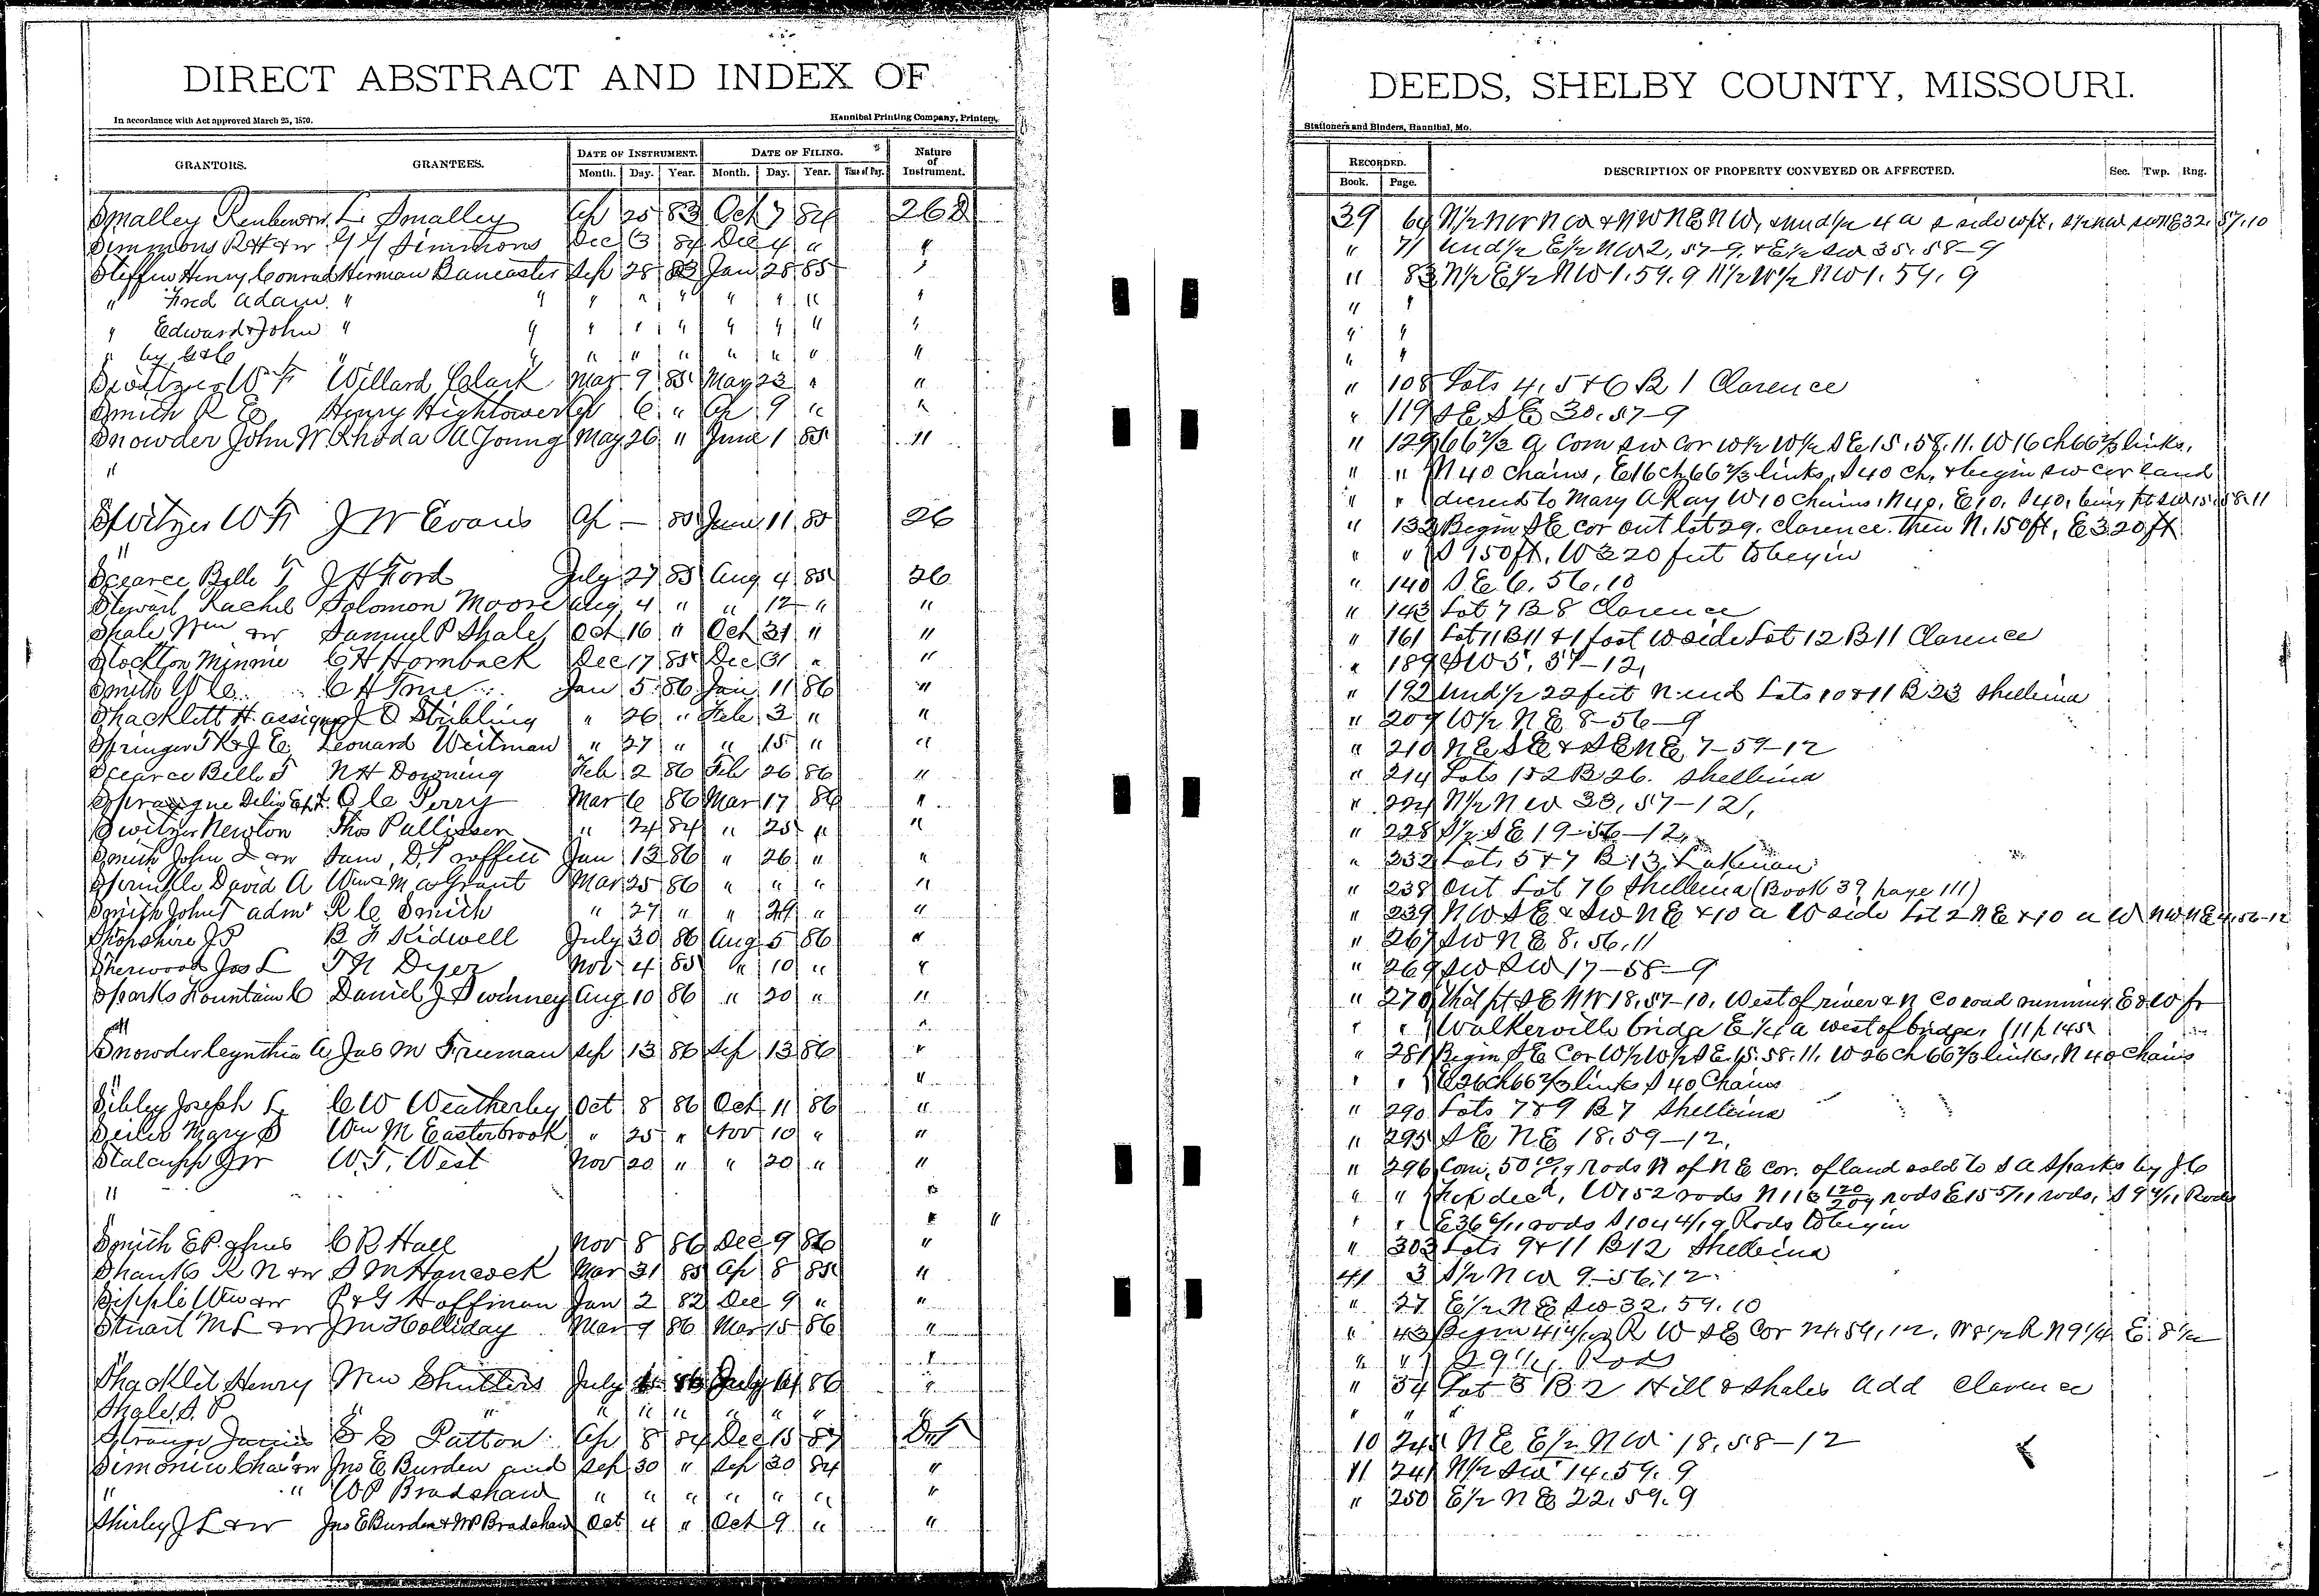 DIRECT ABSTRACT AND INDEX OF
In accordance with Act approved March 25, 1870.
Hannibal Printing Company, Printers,
GRANTORS. GRANTEES. DATE OF INSTRUMENT. DATE OF FILING. Nature of Instrument.
Month. Day. Year. Month. Day. Year. Time of Day.
Smalley L Smalley Ap 25 83 Oct 7 84
Simmons R H & w Simmons Dec 84 Dec 4 "
Steffin Henry Conrad Herman Bancaster Sep 28 83 Jan 28 85
" Fred Adam " " " " " " " " "
" Edward & John " " " " " " " " "
" by " " " " " " " " "
Switzer W F Willard Clark Mar 9 85 May 23 " "
Smith R E Henry Hightower Ap 6 " Ap 9 " "
Snowder John W Rhoda A Young May 26 " June 1 85 "
"
Switzer W F J W Evans Ap — 85 June 11 85 26
"
Scearce Belle T J H Ford July 27 85 Aug 4 85 26
Stewart Rachel Solomon Moore Aug 4 " " 12 " "
Shale Wm & w Samuel P Shale Oct 16 " Oct 31 " "
Stockton Minnie C H Hornback Dec 17 85 Dec 31 " "
Smith W C C H True Jan 5 86 Jan 11 86 "
Shacklett H. assignee J O Stribling " 26 " Feb 3 " "
Springer T K & J E Leonard Weitman " 27 " " 15 " "
Scearce Belle T N H Downing Feb 2 86 Feb 26 86 "
Sprague Delia C Perry Mar 6 86 Mar 17 86 "
Switzer Newton Thos Pullisser " 24 84 " 25 " "
Smith John & w D. Jan 13 86 " 26 " "
Sprinkle David A Wm & M A Grant Mar 25 86 " " " "
Smith John T adm R C Smith " 27 " " 29 " "
Shopshire J P B F Kidwell July 30 86 Aug 5 86 "
Sherwood Jas L T N Dyer Nov 4 85 " 10 " "
Sparks Fountain C Daniel J Dwinney Aug 10 86 " 20 " "
" "
Snowder Cynthia A Jas M Freeman Sep 13 86 Sep 13 86 "
" "
Sibley Joseph L C W Weatherby Oct 8 86 Oct 11 86 "
Seiler Mary S Wm M Easterbrook " 25 " Nov 10 " "
Stalcupp J W W. T. West Nov 20 " " 20 " "
" "
" " "
Smith E P. & hus C B Hall Nov 8 86 Dec 9 86 "
Shanks R N & w S M Hancock Mar 31 85 Ap 8 85 "
Sipple Wm & w P & G Hoffman Jan 2 82 Dec 9 " "
Stuart M L & w J M Holliday Mar 9 86 Mar 15 86 "
" "
Shacklet Henry Wm Shutters July July 14 86 "
Shale S. P " " " " " " " " "
Strange James Patton Ap 8 84 Dec 15 87 DT
Simonin Chas & w Jno E Burden and Sep 30 " Sep 30 84 "
" " W P Bradshaw " " " " " " "
Shirley J L & w Jno E Burden & W P Bradshaw Oct 4 " Oct 9 " "
DEEDS, SHELBY COUNTY, MISSOURI.
Stationers and Binders, Hannibal, Mo.
RECORDED. DESCRIPTION OF PROPERTY CONVEYED OR AFFECTED. Sec. Twp. Rng.
Book. Page.
39 64 N½ NW NW & NW NE NW, & und ½ 4 a 32. 57. 10
" 71 und ½ E½ NW 2, 57-9, & E½ SW 35. 58-9
" 83 N½ E½ NW 1. 59. 9 N½ W½ NW 1. 59. 9
" "
" "
" "
" 108 Lots 4, 5 & 6 B 1 Clarence
" 119 SE SE 30. 57-9
" 129 66 2/3 a Com SW Cor W½ W½ SE 15. 58. 11. W 16 ch 66 2/3 links,
" " N 40 chains, E 16 ch 66 2/3 links, S 40 ch, & begin SW cor land
" " deeded to Mary A Ray W 10 chains, N 40, E 10, S 40, being pt SW 15. 58. 11
" 132 Begin SE cor out lot 29, Clarence. then N. 150 ft, E 320 ft
" " S 150 ft, W 320 feet to begin
" 140 S. E 6. 56. 10
" 143 Lot 7 B 8 Clarence
" 161 Lot 11 B 11 & 1 foot W side Lot 12 B 11 Clarence
" 189 SW 5, 57-12,
" 192 und ½ 22 feet N end Lots 10 & 11 B 23 Shelbina
" 209 W½ NE 8-56-9
" 210 NE SE & SE NE 7-59-12
" 214 Lots 1 & 2 B 26. Shelbina
" 224 N½ NW 33, 57-12,
" 228 S½ SE 19-56-12,
" 232 Lots 5 & 7 B 13 Lakenan
" 238 Out Lot 76 Shelbina (Book 39 page 111)
" 239 NW SE & SW NE & 10 a W side Lot 2 NE & 10 a W NW NE 4. 56-12
" 267 SW NE 8. 56. 11
" 269 SW SW 17-58-9
" 270 that pt SE NW 18. 57-10. West of river & N Co road running E & W fr
" " Walkerville bridge E ¼ a west of bridge,
" 281 Begin SE Cor W½ W½ SE 15. 58. 11. W 26 ch 66 2/3 links, N 40 chains
" " E 26 ch 66 2/3 links S 40 Chains
" 290 Lots 7 & 9 B 7 Shelbina
" 295 SE NE 18. 59-12.
" 296 Com. 50 10/19 Rods N of NE cor. of land sold to S A Sparks by J C
" " decd, W 152 rods N 116 120/209 rods E 15 5/11 rods, S 9 4/11 Rods
" " E 36 6/11 rods S 104 4/19 Rods to begin
" 303 Lots 9 & 11 B 12 Shelbina
41 3 S½ NW 9-56. 12
" 27 E½ NE SW 32. 59. 10
" 43 Begin R W SE Cor W 8½ R N 9¼ E. 8½
" " Rods
" 54 Lot 5 B 2 Hill & Shales Add Clarence
" " "
10 245 NE E½ NW 18. 58-12
11 241 N½ SW 14. 59. 9
" 250 E½ NE 22. 59. 9